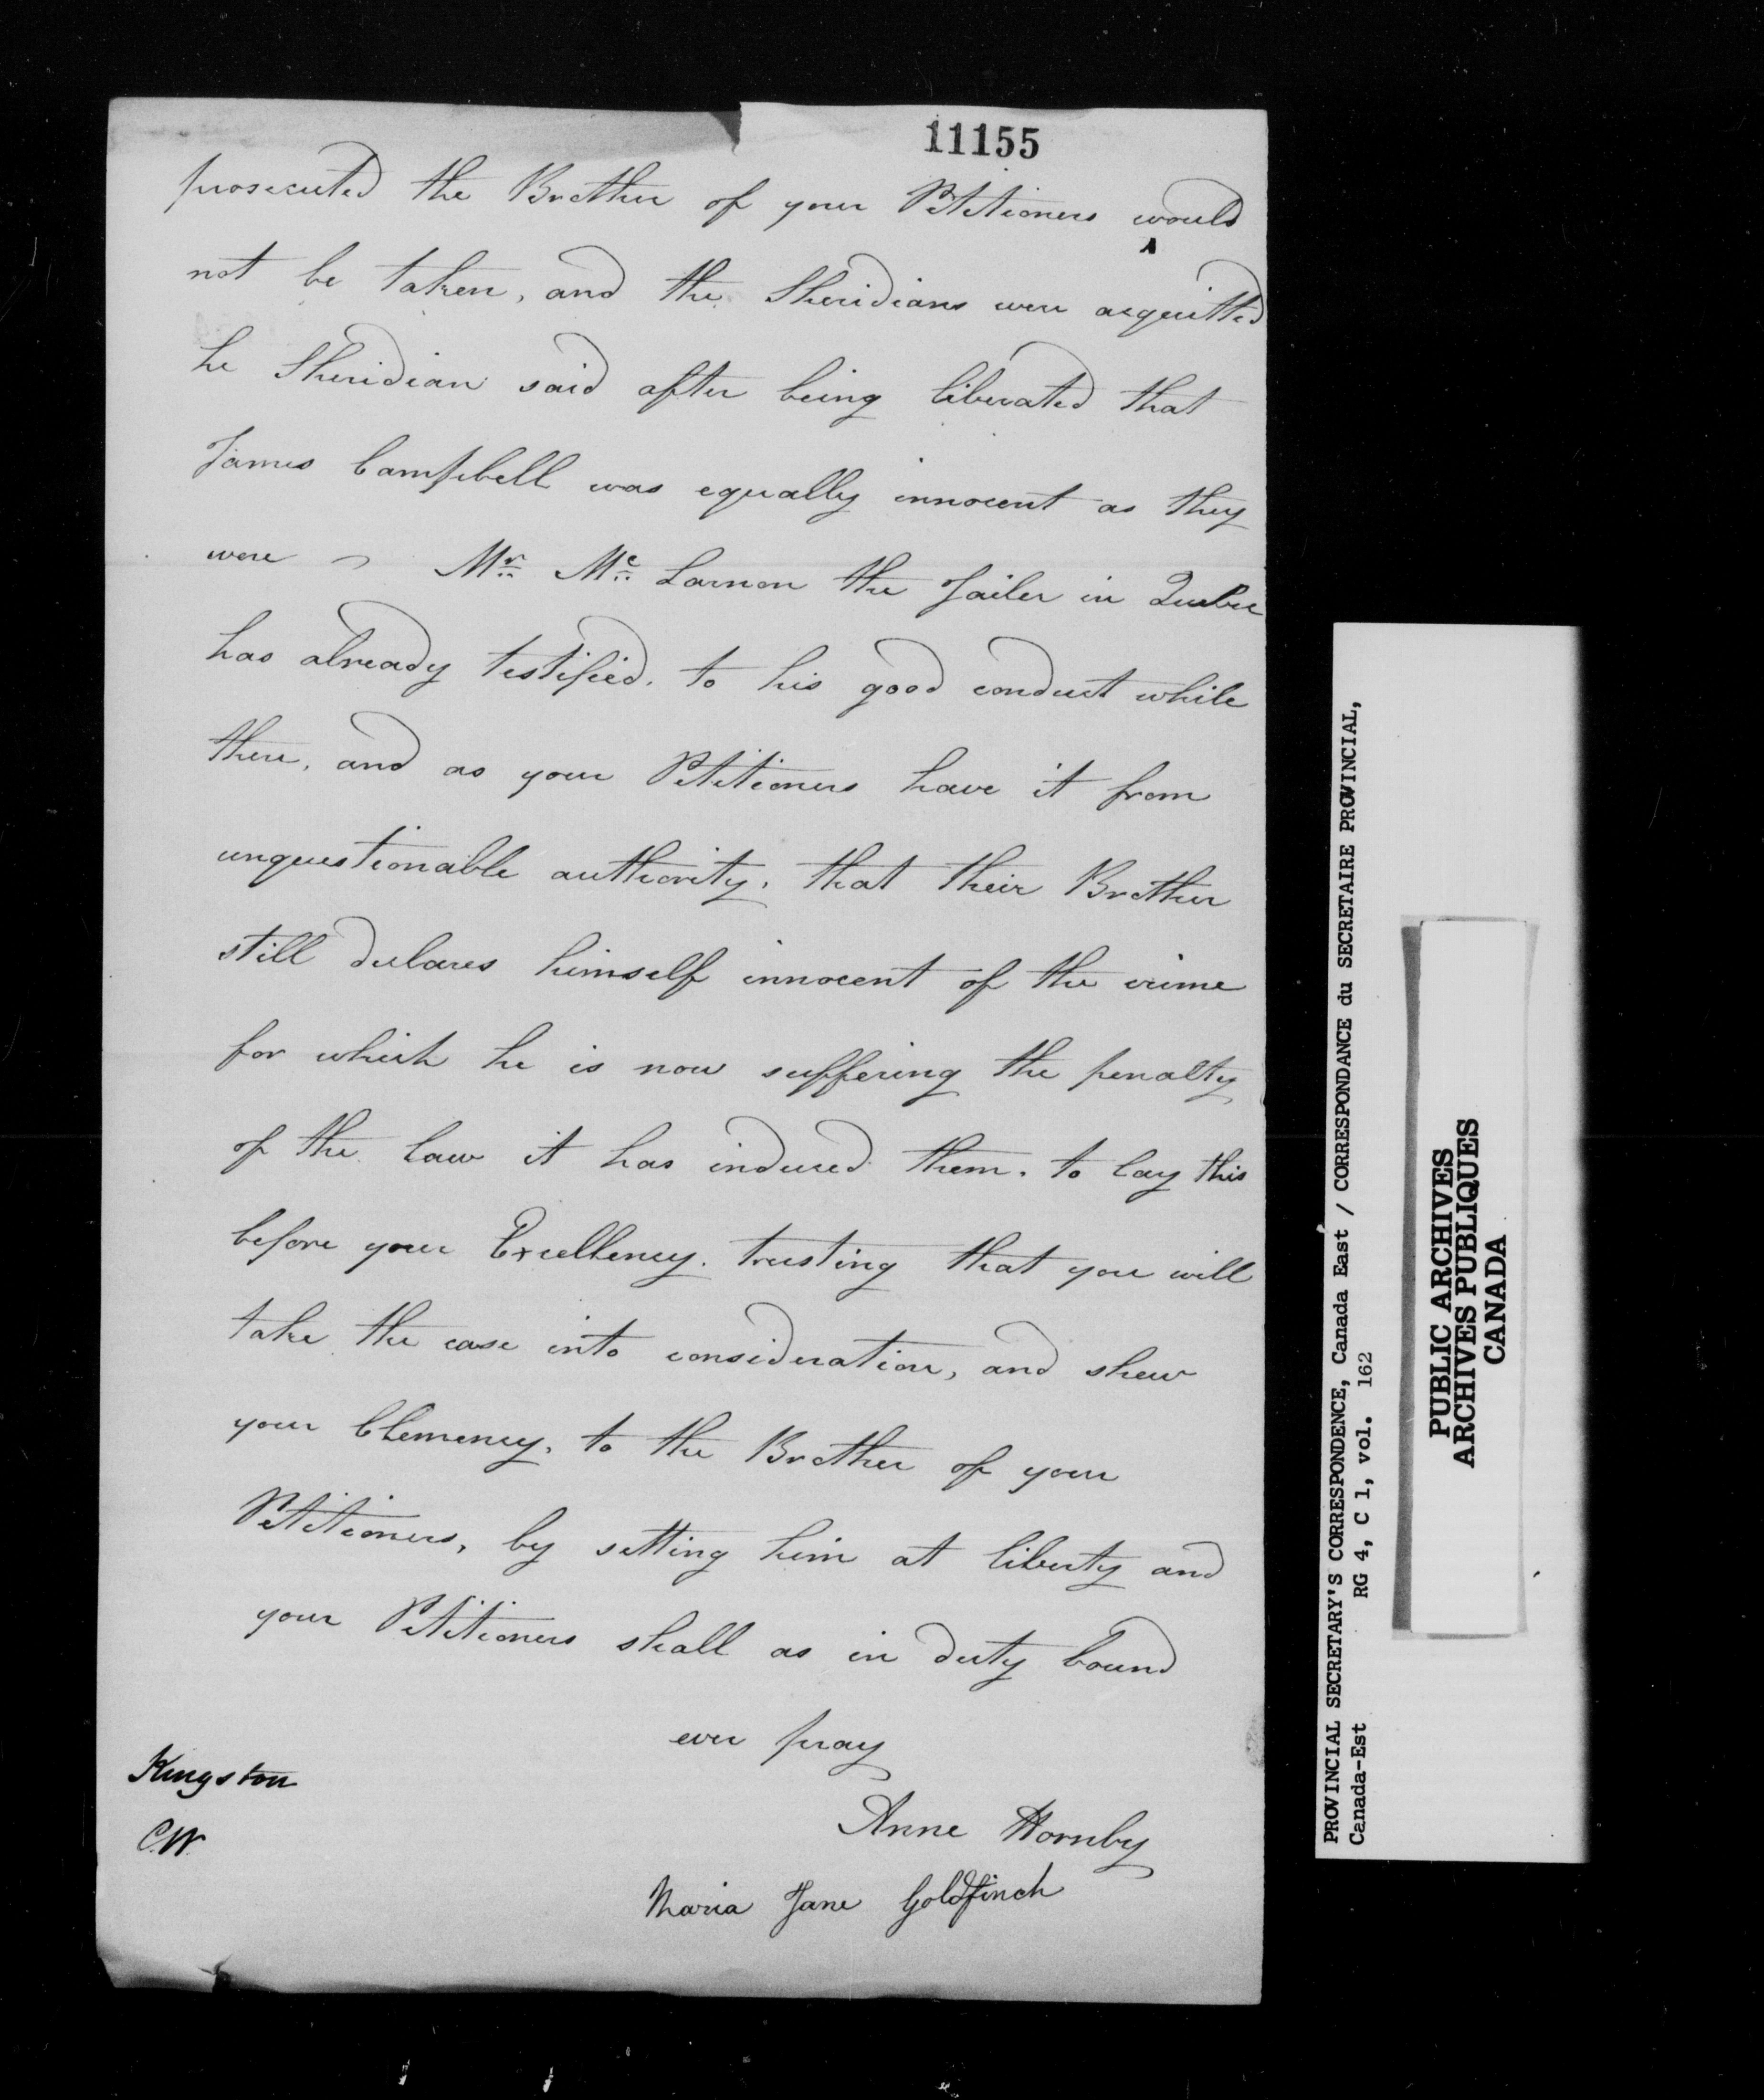 11155
prosecuted the Brother of your Petitioners would
not be taken, and the Sheridians were acquitted
he Sheridian said after being liberated that
James Campbell was equally innocent as they
were Mr. Mc. Larnon the Jailer in Quebec
has already testified. to his good conduct while
there, and as your Petitioners have it from
unquestionable authority, that their Brother
still declares himself innocent of the crime
for which he is now suffering the penalty
of the Law it has induced them. to lay this
before your Excellency. trusting that you will
take the case into consideration, and shew
your Clemency, to the Brother of your
Petitioners, by setting him at liberty and
your Petitioners shall as in duty bound
ever pray
Kingston
C.W.
Anne Hornby
Maria Jane Goldfinch
PROVINCIAL SECRETARY'S CORRESPONDENCE, Canada East / CORRESPONDANCE du SECRETAIRE PROVINCIAL,
Canada-Est RG 4, C 1, vol. 162
PUBLIC ARCHIVES
ARCHIVES PUBLIQUES
CANADA